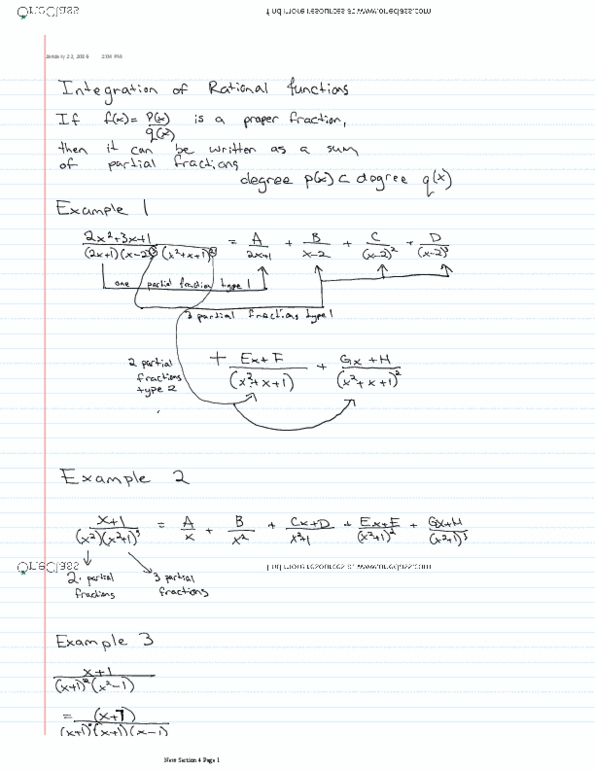 OneClass find more resources at www.oneclass.com
January 22, 2016
Integration of Rational functions
If f(x) = P(x)/q(x) is a proper fraction,
then it can be written as a sum
of partial fractions
degree p(x) < degree q(x)
Example 1
2x²+3x+1 / (2x+1)(x-2)³(x²+x+1)² = A/2x+1 + B/x-2 + C/(x-2)² + D/(x-2)³
one partial fraction type 1
3 partial fractions type 1
2 partial fractions type 2
+ Ex+F/(x²+x+1) + Gx+H/(x²+x+1)²
Example 2
x+1/(x²)(x²+1)³ = A/x + B/x² + Cx+D/x²+1 + Ex+F/(x²+1)² + Gx+H/(x²+1)³
OneClass find more resources at www.oneclass.com
2 partial fractions
3 partial fractions
Example 3
x+1/(x+1)²(x²-1)
= (x+1)/(x+1)²(x+1)(x-1)
New Section 4 Page 1